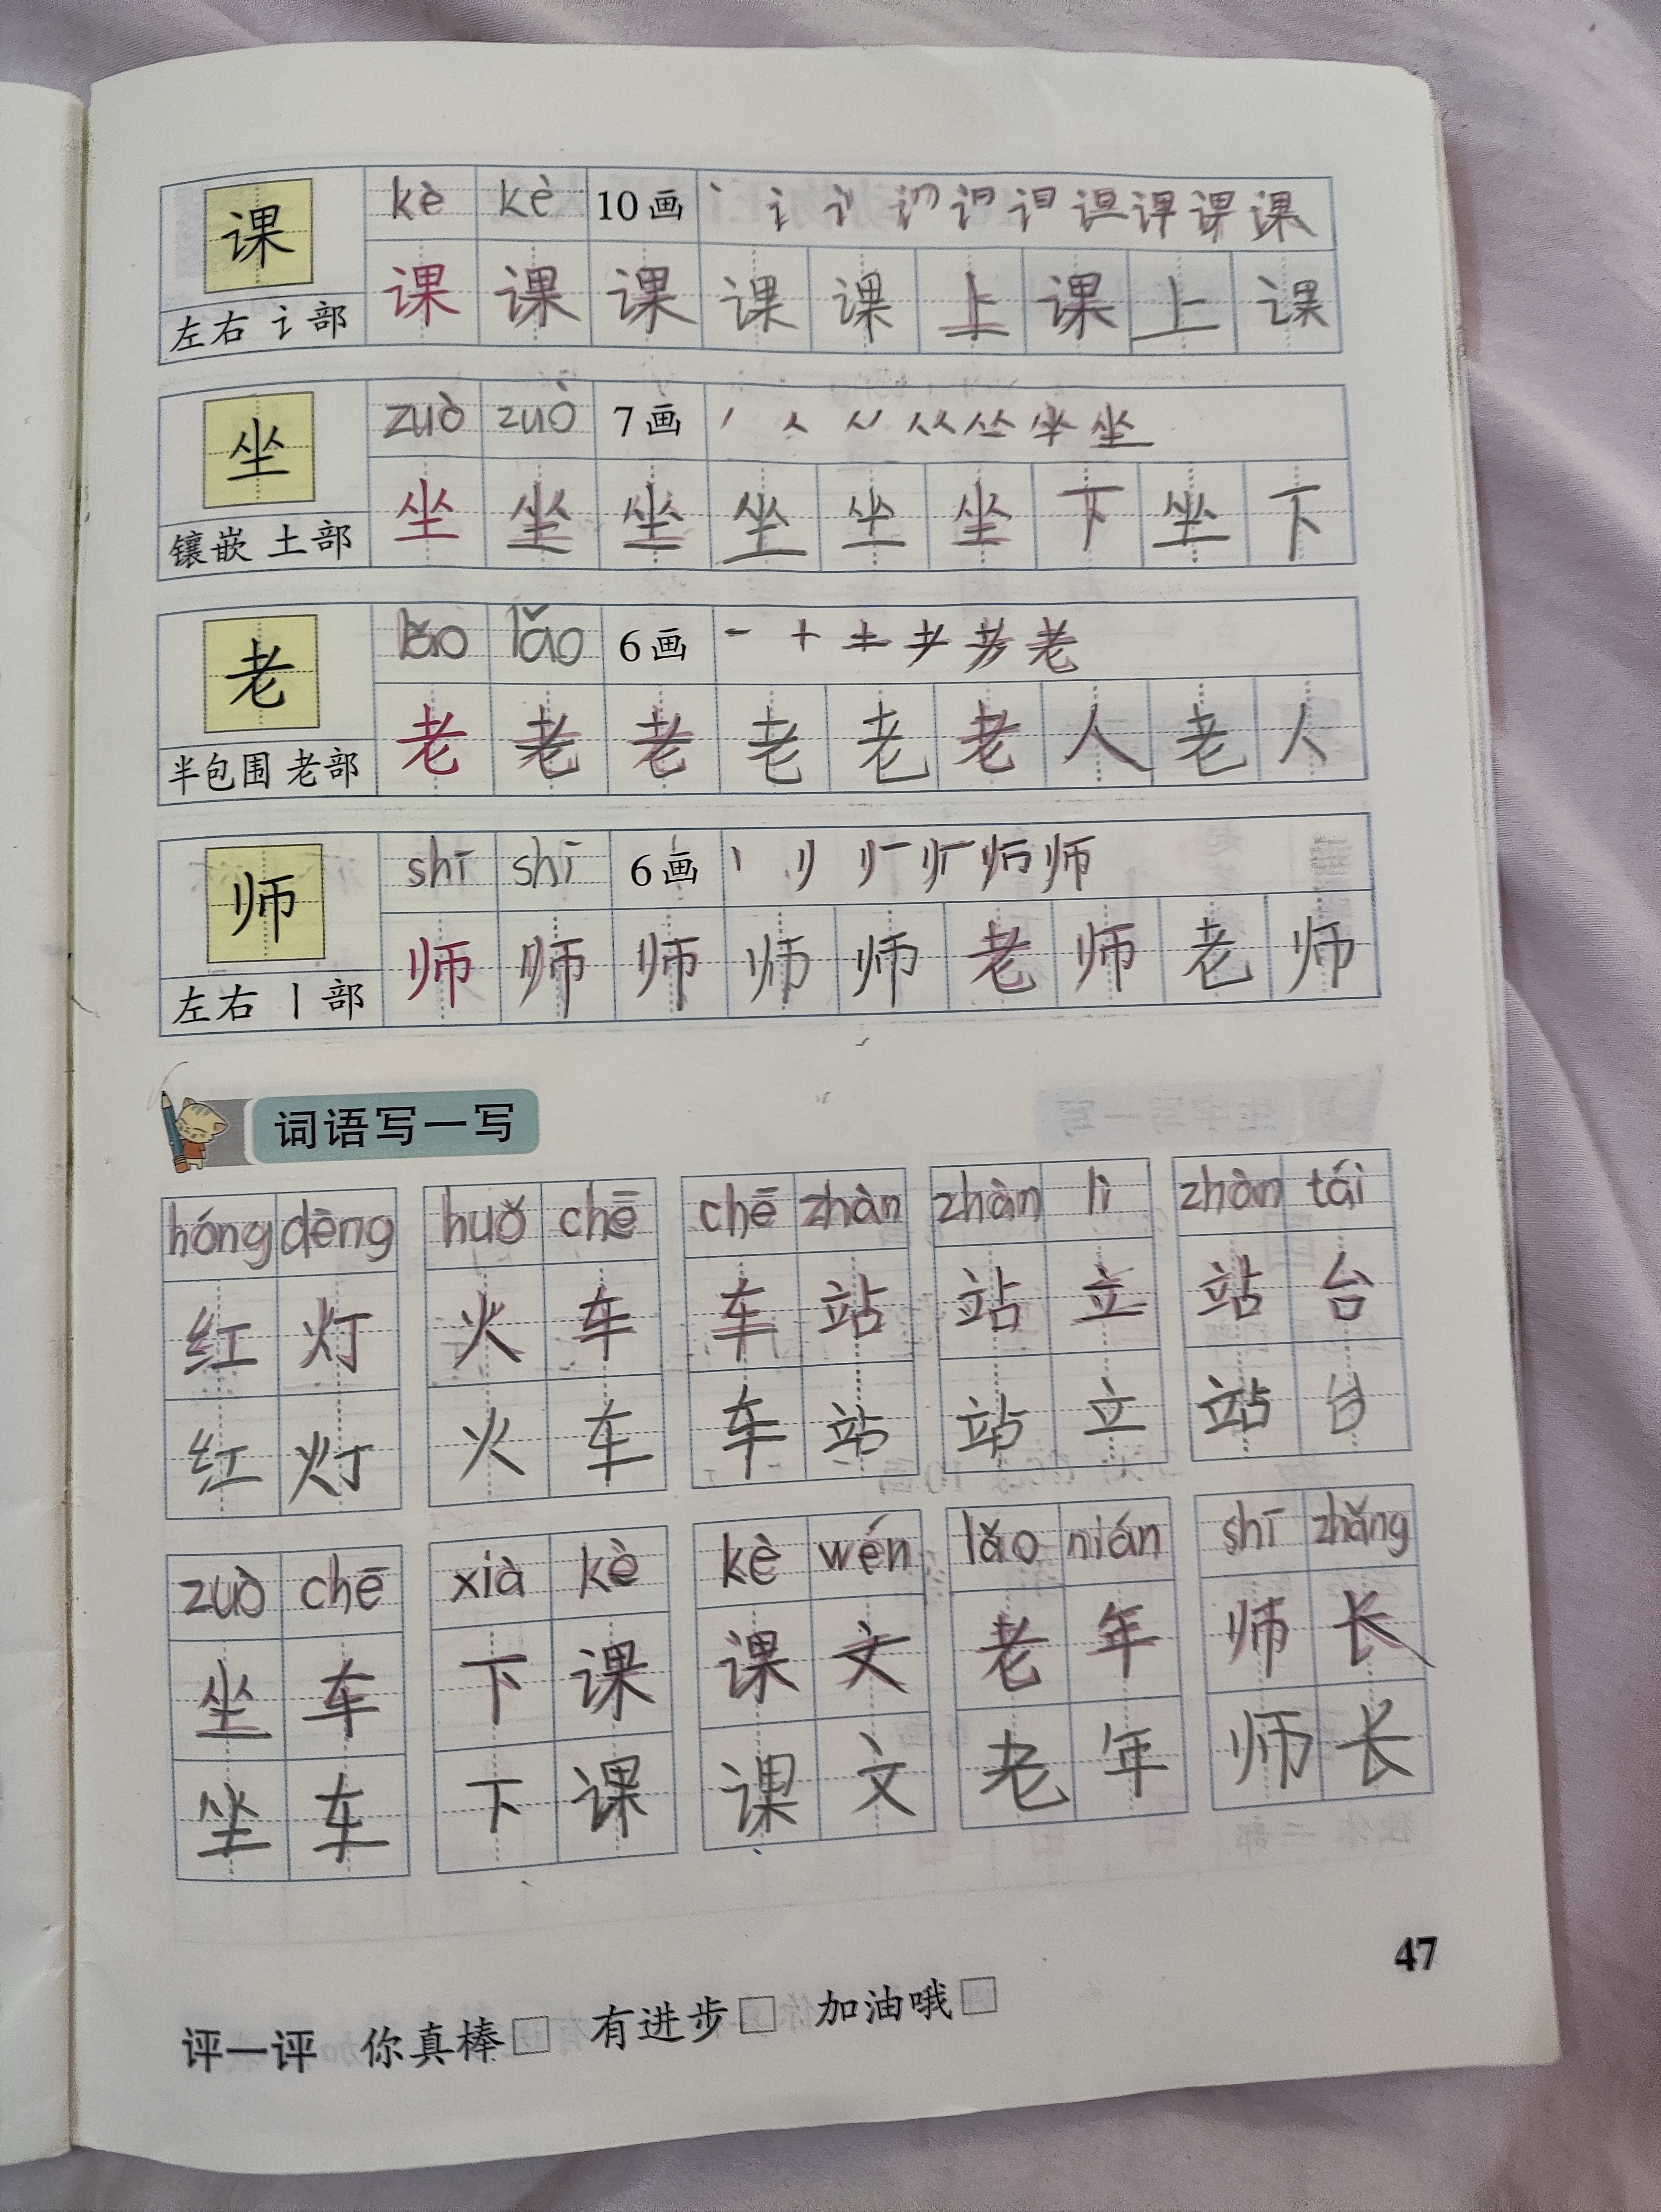 课 kè kè 10画 丶 讠 课
课 课 课 课 课 上 课 上 课
左右 讠部
坐 zuò zuò 7画 丿 人 坐
坐 坐 坐 坐 坐 坐 下 坐 下
镶嵌 土部
老 lǎo lǎo 6画 一 十 土 耂 老
老 老 老 老 老 老 人 老 人
半包围 老部
师 shī shī 6画 丨 师
师 师 师 师 师 老 师 老 师
左右 丨部
词语写一写
hóng dēng huǒ chē chē zhàn zhàn lì zhàn tái
红 灯 火 车 车 站 站 立 站 台
红 灯 火 车 车 站 站 立 站 台
zuò chē xià kè kè wén lǎo nián shī zhǎng
坐 车 下 课 课 文 老 年 师 长
坐 车 下 课 课 文 老 年 师 长
47
评一评 你真棒□ 有进步□ 加油哦□